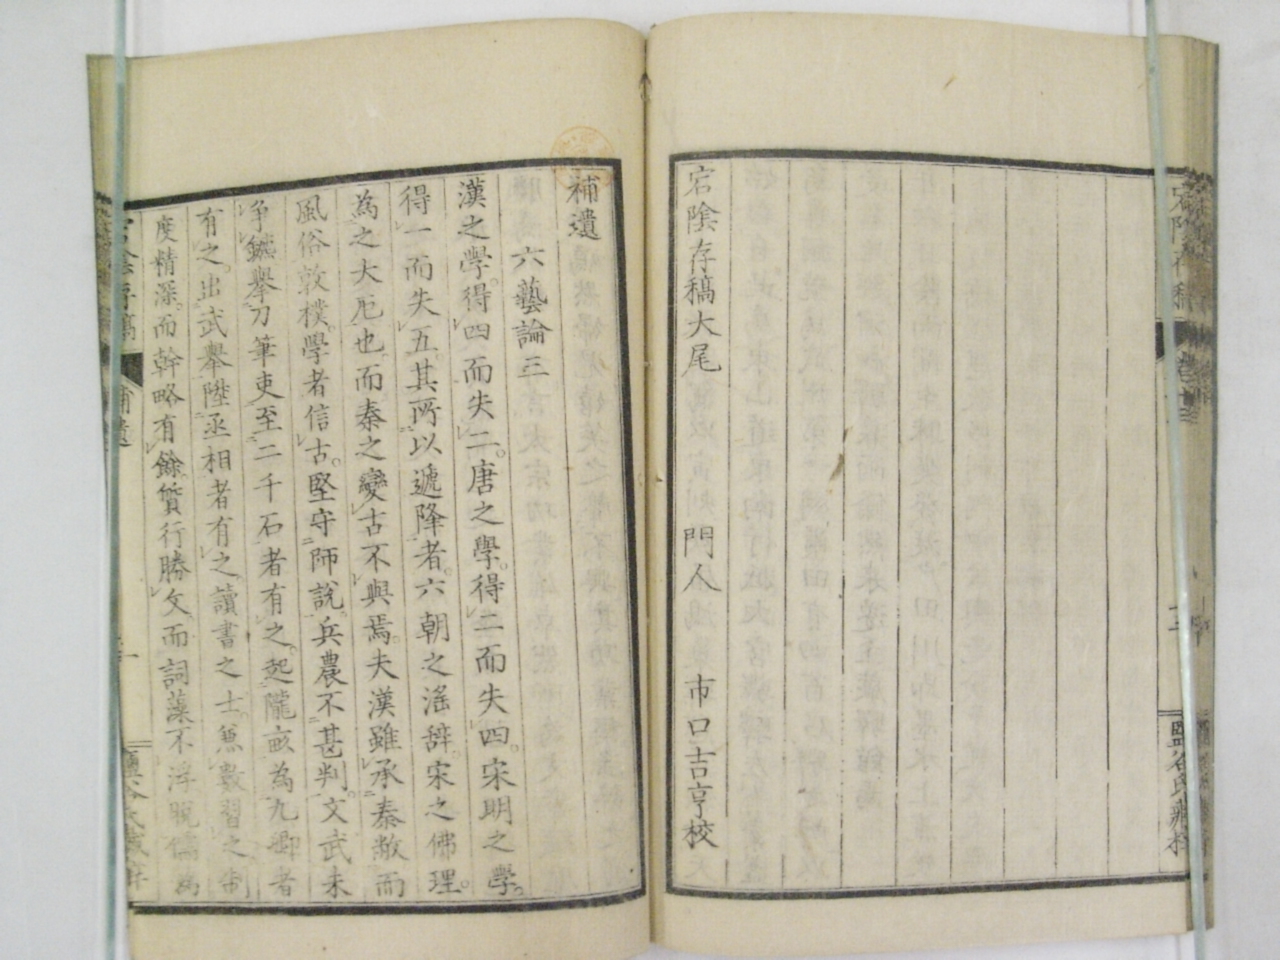 宕陰存稿大尾　門人　市口吉亨校
補遺
六藝論三
漢之學。得四而失二。唐之學。得二而失四。宋明之學。
得一而失五。其所以遞降者。六朝之淫辭。宋之佛理。
為之大厄也。而秦之變古不與焉。夫漢雖承秦敝而
風俗敦樸。學者信古。堅守師說。兵農不甚判。文武未
爭鑣。舉刀筆吏至二千石者有之。起隴畝為九卿者
有之。出武舉陞丞相者有之。讀書之士。兼數習之制
度精深。而幹略有餘。質行勝文。而詞藻不浮靡。儒為
宕陰存稿
補遺
一
鹽谷氏藏梓